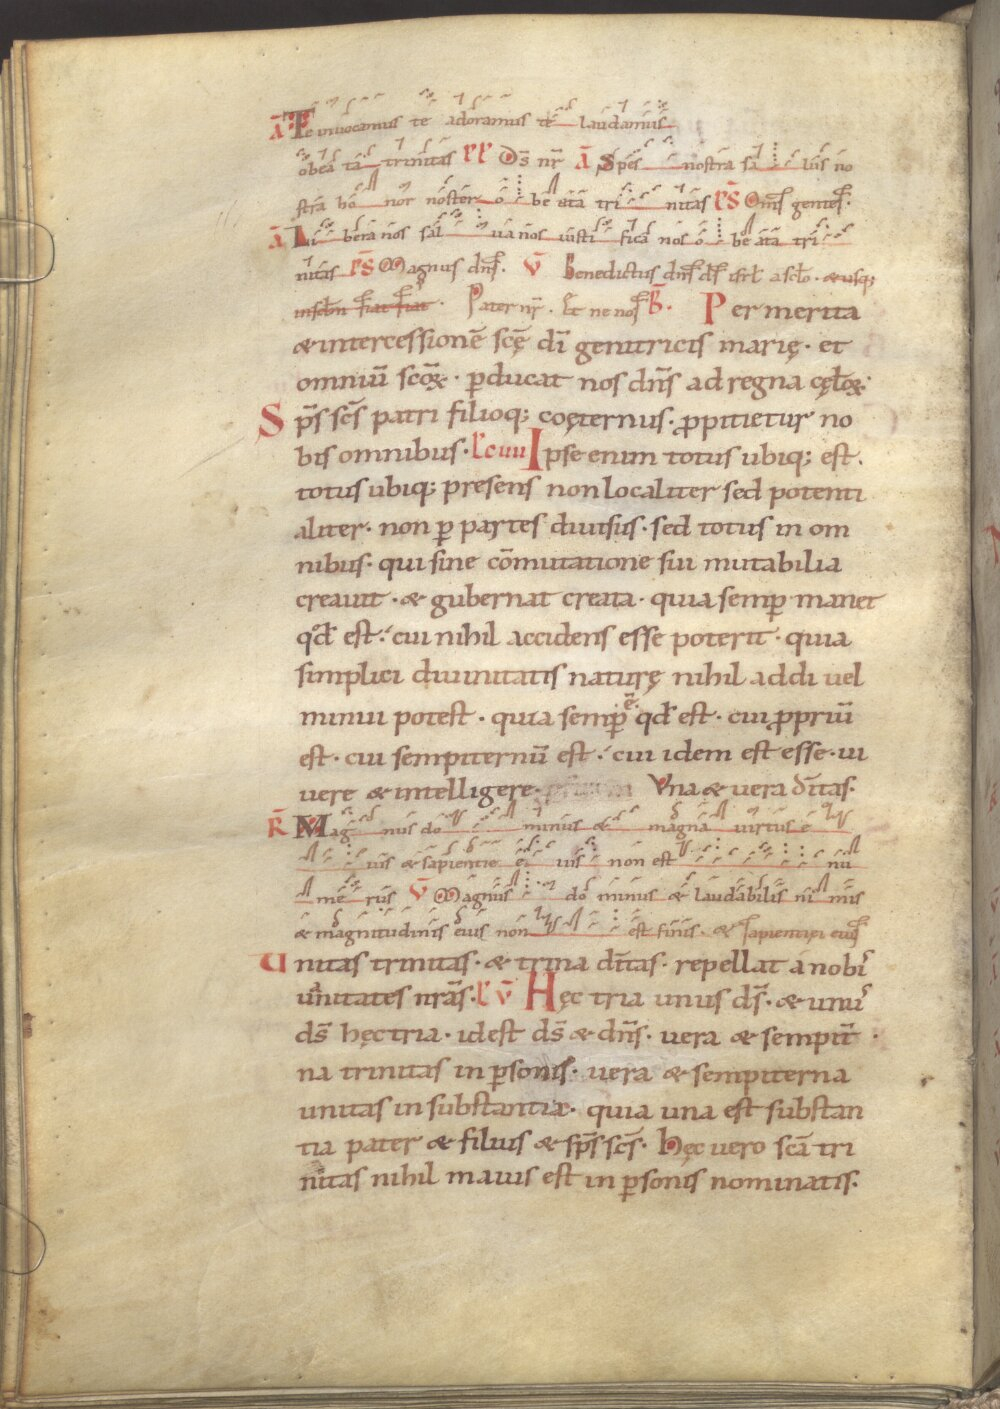 Ā Te inuocamus te adoramus te laudamus
o bea ta trinitas PS Ds̄ nr̄ Ā Spes nostra sa lus no
stra ho nor noster o be ata tri nitas PS̄ Om̄s gentes.
Ā Li bera nos sal ua nos iusti fica nos o be ata tri
nitas PS̄ Magnus dn̄s. V̄ Benedictus dn̄s ds̄ isrl̄ a sclō. & usq;
in sclm̄ fiat fiat. Pater nr̄. Et ne nos B̄. Per merita
& intercessionē scę̄ dī genitricis marię. et
omniū scōꝝ. ꝑducat nos dn̄s ad regna cęloꝝ.
Sp̄s scs̄ patri filioq; coęternus. ꝓpitietur no
bis omnibus. Lc̄ uii Ipse enim totus ubiq; est.
totus ubiq; presens non localiter sed potenti
aliter. non ꝑ partes diuisus. sed totus in om
nibus. qui sine cōmutatione sui mutabilia
creauit. & gubernat creata. quia semꝑ manet
qd̄ est. cui nihil accidens esse poterit. quia
simplici diuinitatis naturę nihil addi uel
minui potest. quia semꝑ ē qd̄ est. cui ꝓpriū
est. cui sempiternū est. cui idem est esse. ui
uere & intelligere. Vna & uera dītas.
R̄ Mag nus do minus & magna uirtus e
ius & sapientię ei us non est nu
me rus V̄ Magnus do minus & laudabilis ni mis
& magnitudinis eius non est finis. & sapientięi eius
Unitas trinitas. & trina dītas. repellat a nobis
uanitates nrās. L V̄ Hęc tria unus ds̄. & unus
ds̄ hęc tria. id est ds̄ & dn̄s. uera & sempit̄
na trinitas in ꝑsonis. uera & sempiterna
unitas in substantia. quia una est substan
tia pater & filius & sp̄s scs̄. Hęc uero scā tri
nitas nihil maius est in ꝑsonis nominatis.